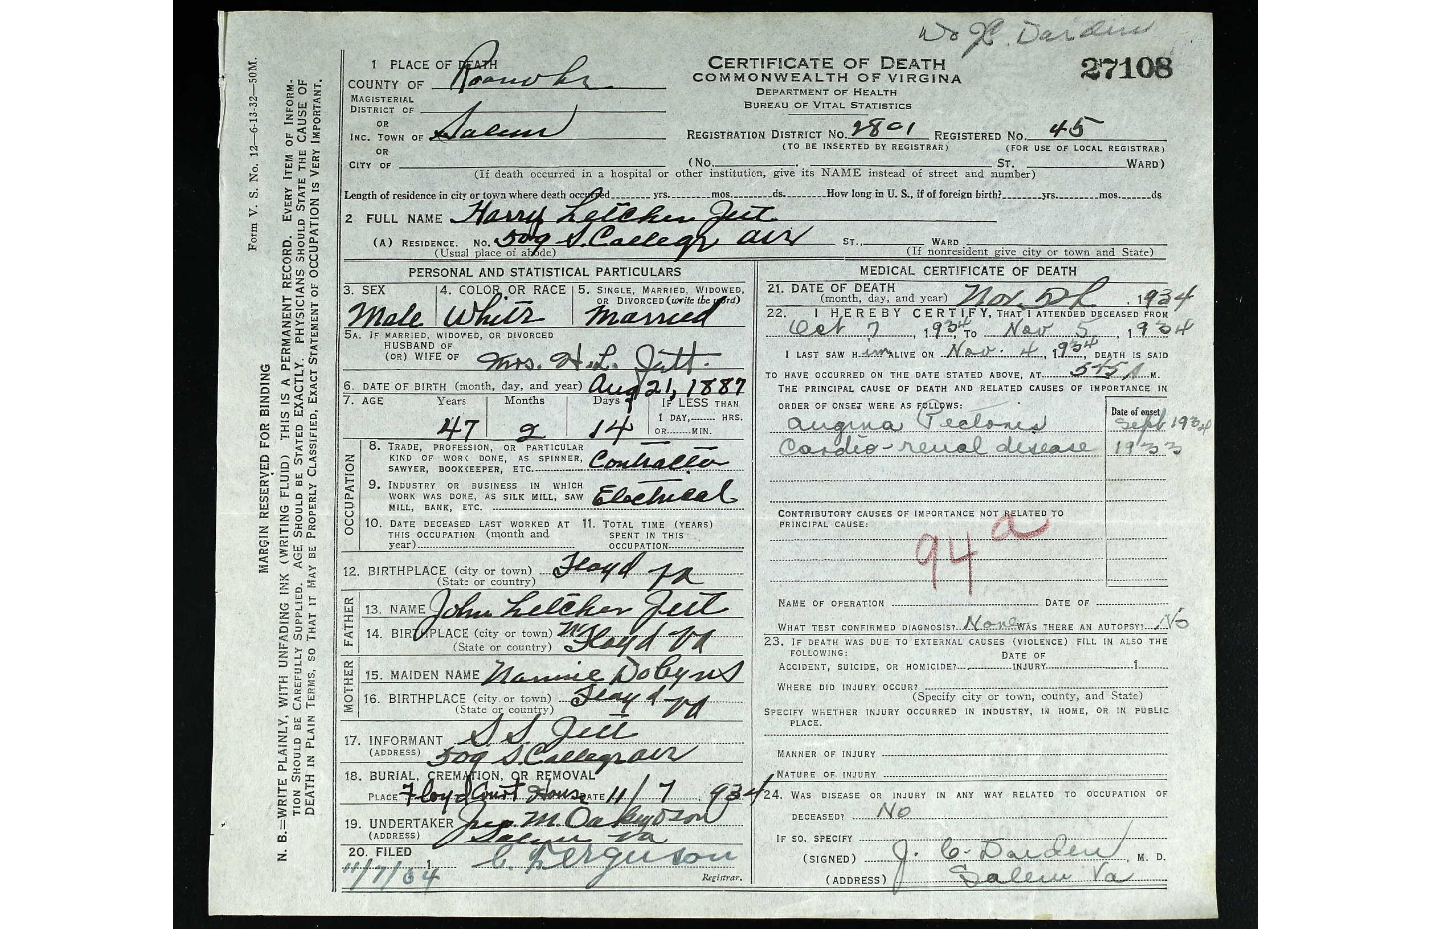 Dr J C Darden
1 PLACE OF DEATH
COUNTY OF Roanoke
MAGISTERIAL
DISTRICT OF
OR
INC. TOWN OF Salem
OR
CITY OF
CERTIFICATE OF DEATH
COMMONWEALTH OF VIRGINIA
DEPARTMENT OF HEALTH
BUREAU OF VITAL STATISTICS
27108
REGISTRATION DISTRICT NO. 2801 REGISTERED NO. 45
(TO BE INSERTED BY REGISTRAR) (FOR USE OF LOCAL REGISTRAR)
(No. ST. WARD)
(If death occurred in a hospital or other institution, give its NAME instead of street and number)
Length of residence in city or town where death occurred yrs. mos. ds. How long in U. S., if of foreign birth? yrs. mos. ds
2 FULL NAME Harry Letcher Jett
(A) RESIDENCE. NO. 509 S. College ave ST., WARD
(Usual place of abode) (If nonresident give city or town and State)
PERSONAL AND STATISTICAL PARTICULARS
3. SEX 4. COLOR OR RACE 5. SINGLE, MARRIED, WIDOWED,
OR DIVORCED (write the word)
Male White Married
5A. IF MARRIED, WIDOWED, OR DIVORCED
HUSBAND OF
(OR) WIFE OF Mrs. H. L. Jett.
6. DATE OF BIRTH (month, day, and year) Aug 21, 1887
7. AGE Years Months Days IF LESS THAN
1 DAY, HRS.
OR MIN.
47 2 14
OCCUPATION
8. TRADE, PROFESSION, OR PARTICULAR
KIND OF WORK DONE, AS SPINNER,
SAWYER, BOOKKEEPER, ETC. Contractor
9. INDUSTRY OR BUSINESS IN WHICH
WORK WAS DONE, AS SILK MILL, SAW
MILL, BANK, ETC. Electrical
10. DATE DECEASED LAST WORKED AT 11. TOTAL TIME (YEARS)
THIS OCCUPATION (month and SPENT IN THIS
year) OCCUPATION
12. BIRTHPLACE (city or town) Floyd Va
(State or country)
FATHER
13. NAME John Letcher Jett
14. BIRTHPLACE (city or town) Floyd Va
(State or country)
MOTHER
15. MAIDEN NAME Nannie Dobyns
16. BIRTHPLACE (city or town) Floyd Va
(State or country)
17. INFORMANT S. S. Jett
(ADDRESS) 509 S. College ave
18. BURIAL, CREMATION, OR REMOVAL
PLACE Floyd Court House DATE 11/7, 1934
19. UNDERTAKER Jno. M. Oakey & Son
(ADDRESS) Salem Va
20. FILED C. Ferguson
11/7/34 1 Registrar.
MEDICAL CERTIFICATE OF DEATH
21. DATE OF DEATH
(month, day, and year) Nov. 5th, 1934
22. I HEREBY CERTIFY, THAT I ATTENDED DECEASED FROM
Oct 7, 1934 TO Nov 5, 1934
I LAST SAW HIM ALIVE ON Nov. 4, 1934, DEATH IS SAID
TO HAVE OCCURRED ON THE DATE STATED ABOVE, AT 5 A M.
THE PRINCIPAL CAUSE OF DEATH AND RELATED CAUSES OF IMPORTANCE IN
ORDER OF ONSET WERE AS FOLLOWS: Date of onset
Angina Pectoris Sept 1934
Cardio-renal disease 1933
CONTRIBUTORY CAUSES OF IMPORTANCE NOT RELATED TO
PRINCIPAL CAUSE:
94a
NAME OF OPERATION DATE OF
WHAT TEST CONFIRMED DIAGNOSIS? None WAS THERE AN AUTOPSY? No
23. IF DEATH WAS DUE TO EXTERNAL CAUSES (VIOLENCE) FILL IN ALSO THE
FOLLOWING: DATE OF
ACCIDENT, SUICIDE, OR HOMICIDE? INJURY 1
WHERE DID INJURY OCCUR?
(Specify city or town, county, and State)
SPECIFY WHETHER INJURY OCCURRED IN INDUSTRY, IN HOME, OR IN PUBLIC
PLACE.
MANNER OF INJURY
NATURE OF INJURY
24. WAS DISEASE OR INJURY IN ANY WAY RELATED TO OCCUPATION OF
DECEASED? No
IF SO, SPECIFY
(SIGNED) J. C. Darden, M. D.
(ADDRESS) Salem Va
Form V. S. No. 12—6-13-32—50M.
MARGIN RESERVED FOR BINDING
N. B.—WRITE PLAINLY, WITH UNFADING INK (WRITING FLUID) THIS IS A PERMANENT RECORD. EVERY ITEM OF INFORM-
TION SHOULD BE CAREFULLY SUPPLIED. AGE SHOULD BE STATED EXACTLY. PHYSICIANS SHOULD STATE THE CAUSE OF
DEATH IN PLAIN TERMS, SO THAT IT MAY BE PROPERLY CLASSIFIED, EXACT STATEMENT OF OCCUPATION IS VERY IMPORTANT.